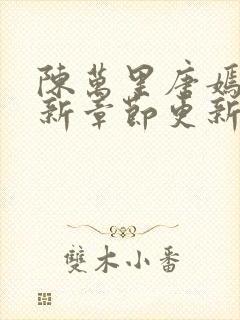 陳萬里唐嫣
新章節更新
雙木小番